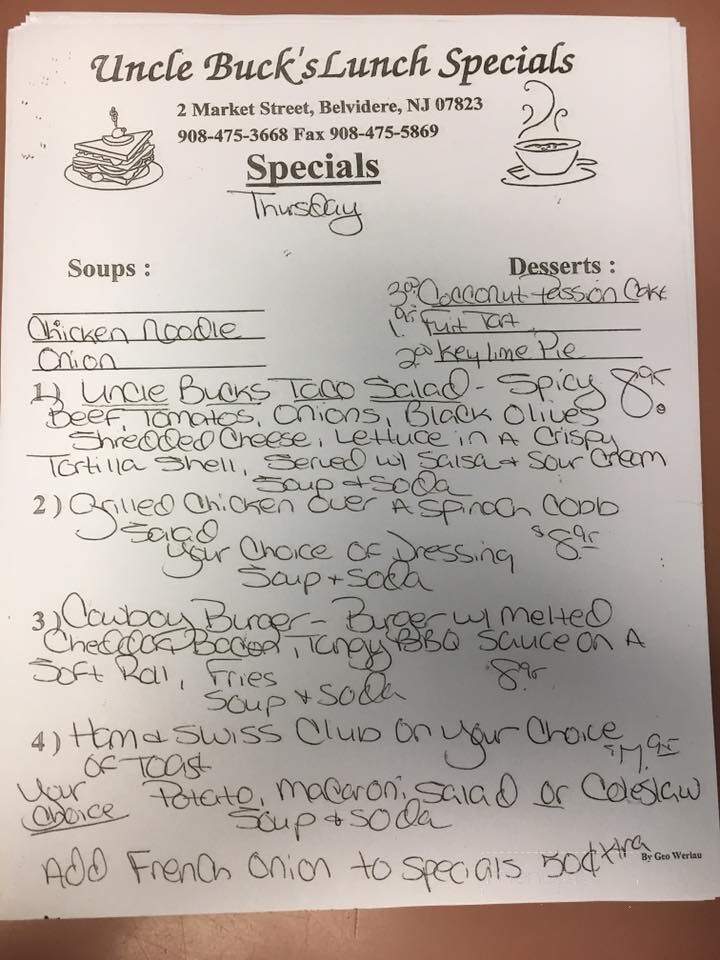 Uncle Buck's Lunch Specials
2 Market Street, Belvidere, NJ 07823
908-475-3668 Fax 908-475-5869
Specials
Thursday
Soups :
Chicken Noodle
Onion
Desserts :
Coconut Passion Cake
Fuit Tart
Key lime Pie
1) Uncle Bucks Taco Salad - Spicy 8.95
Beef, Tomatos, Onions, Black Olives
Shredded Cheese, Lettuce in A Crispy
Tortilla Shell, Served w/ Salsa + Sour Cream
Soup + Soda
2) Grilled Chicken over A Spinach Cobb
Salad $8.95
Your Choice Of Dressing
Soup + Soda
3) Cowboy Burger - Burger w/ melted
Cheddar Bacon, Tangy BBQ Sauce on A
Soft Roll, Fries 8.95
Soup + Soda
4) Ham + Swiss Club On Your Choice
Of Toast
Your Choice Potato, Macaroni, Salad or Coleslaw
Soup + Soda
Add French Onion to Specials 50¢ xtra
By Geo Weriau